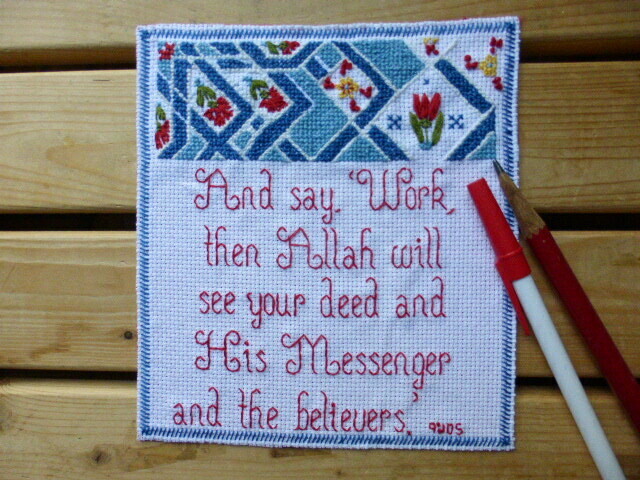 And say, 'Work,
then Allah will
see your deed and
His Messenger
and the believers.'